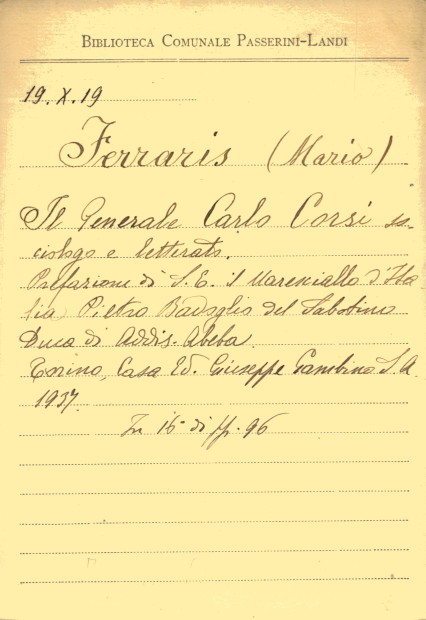 BIBLIOTECA COMUNALE PASSERINI-LANDI
19.X.19
Ferraris (Mario)
Il Generale Carlo Corsi so-
ciologo e letterato.
Prefazione di S.E. il Maresciallo d'Ita
lia, Pietro Badoglio del Sabotino
Duca di Addis-Abeba.
Torino, Casa Ed. Giuseppe Gambino S.A
1937
In 16° di pp. 96